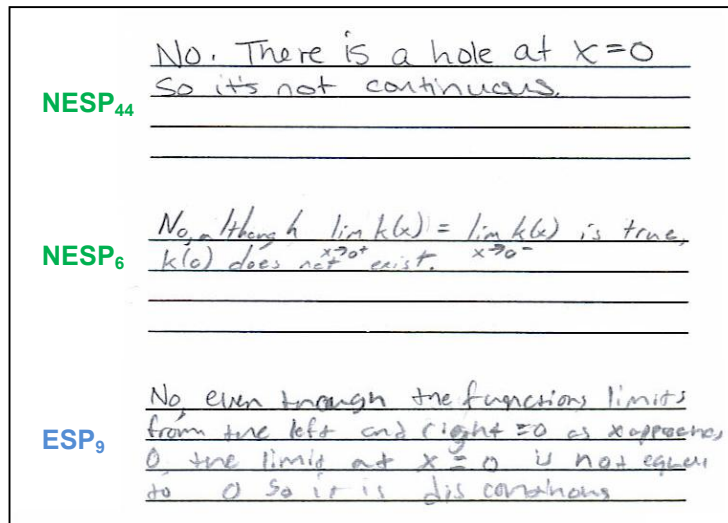 No. There is a hole at x=0
NESP44 so it's not continuous.
No, although lim k(x) = lim k(x) is true,
x→0+ x→0-
NESP6 k(0) does not exist.
No, even through the functions limits
ESP9 from the left and right =0 as x approaches
0 the limit at x=0 is not equal
to 0 so it is dis continous